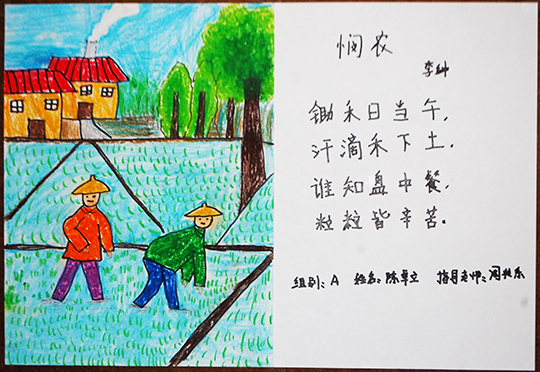 悯农
李绅
锄禾日当午,
汗滴禾下土.
谁知盘中餐,
粒粒皆辛苦.
组别: A 姓名: 陈卓立 指导老师: